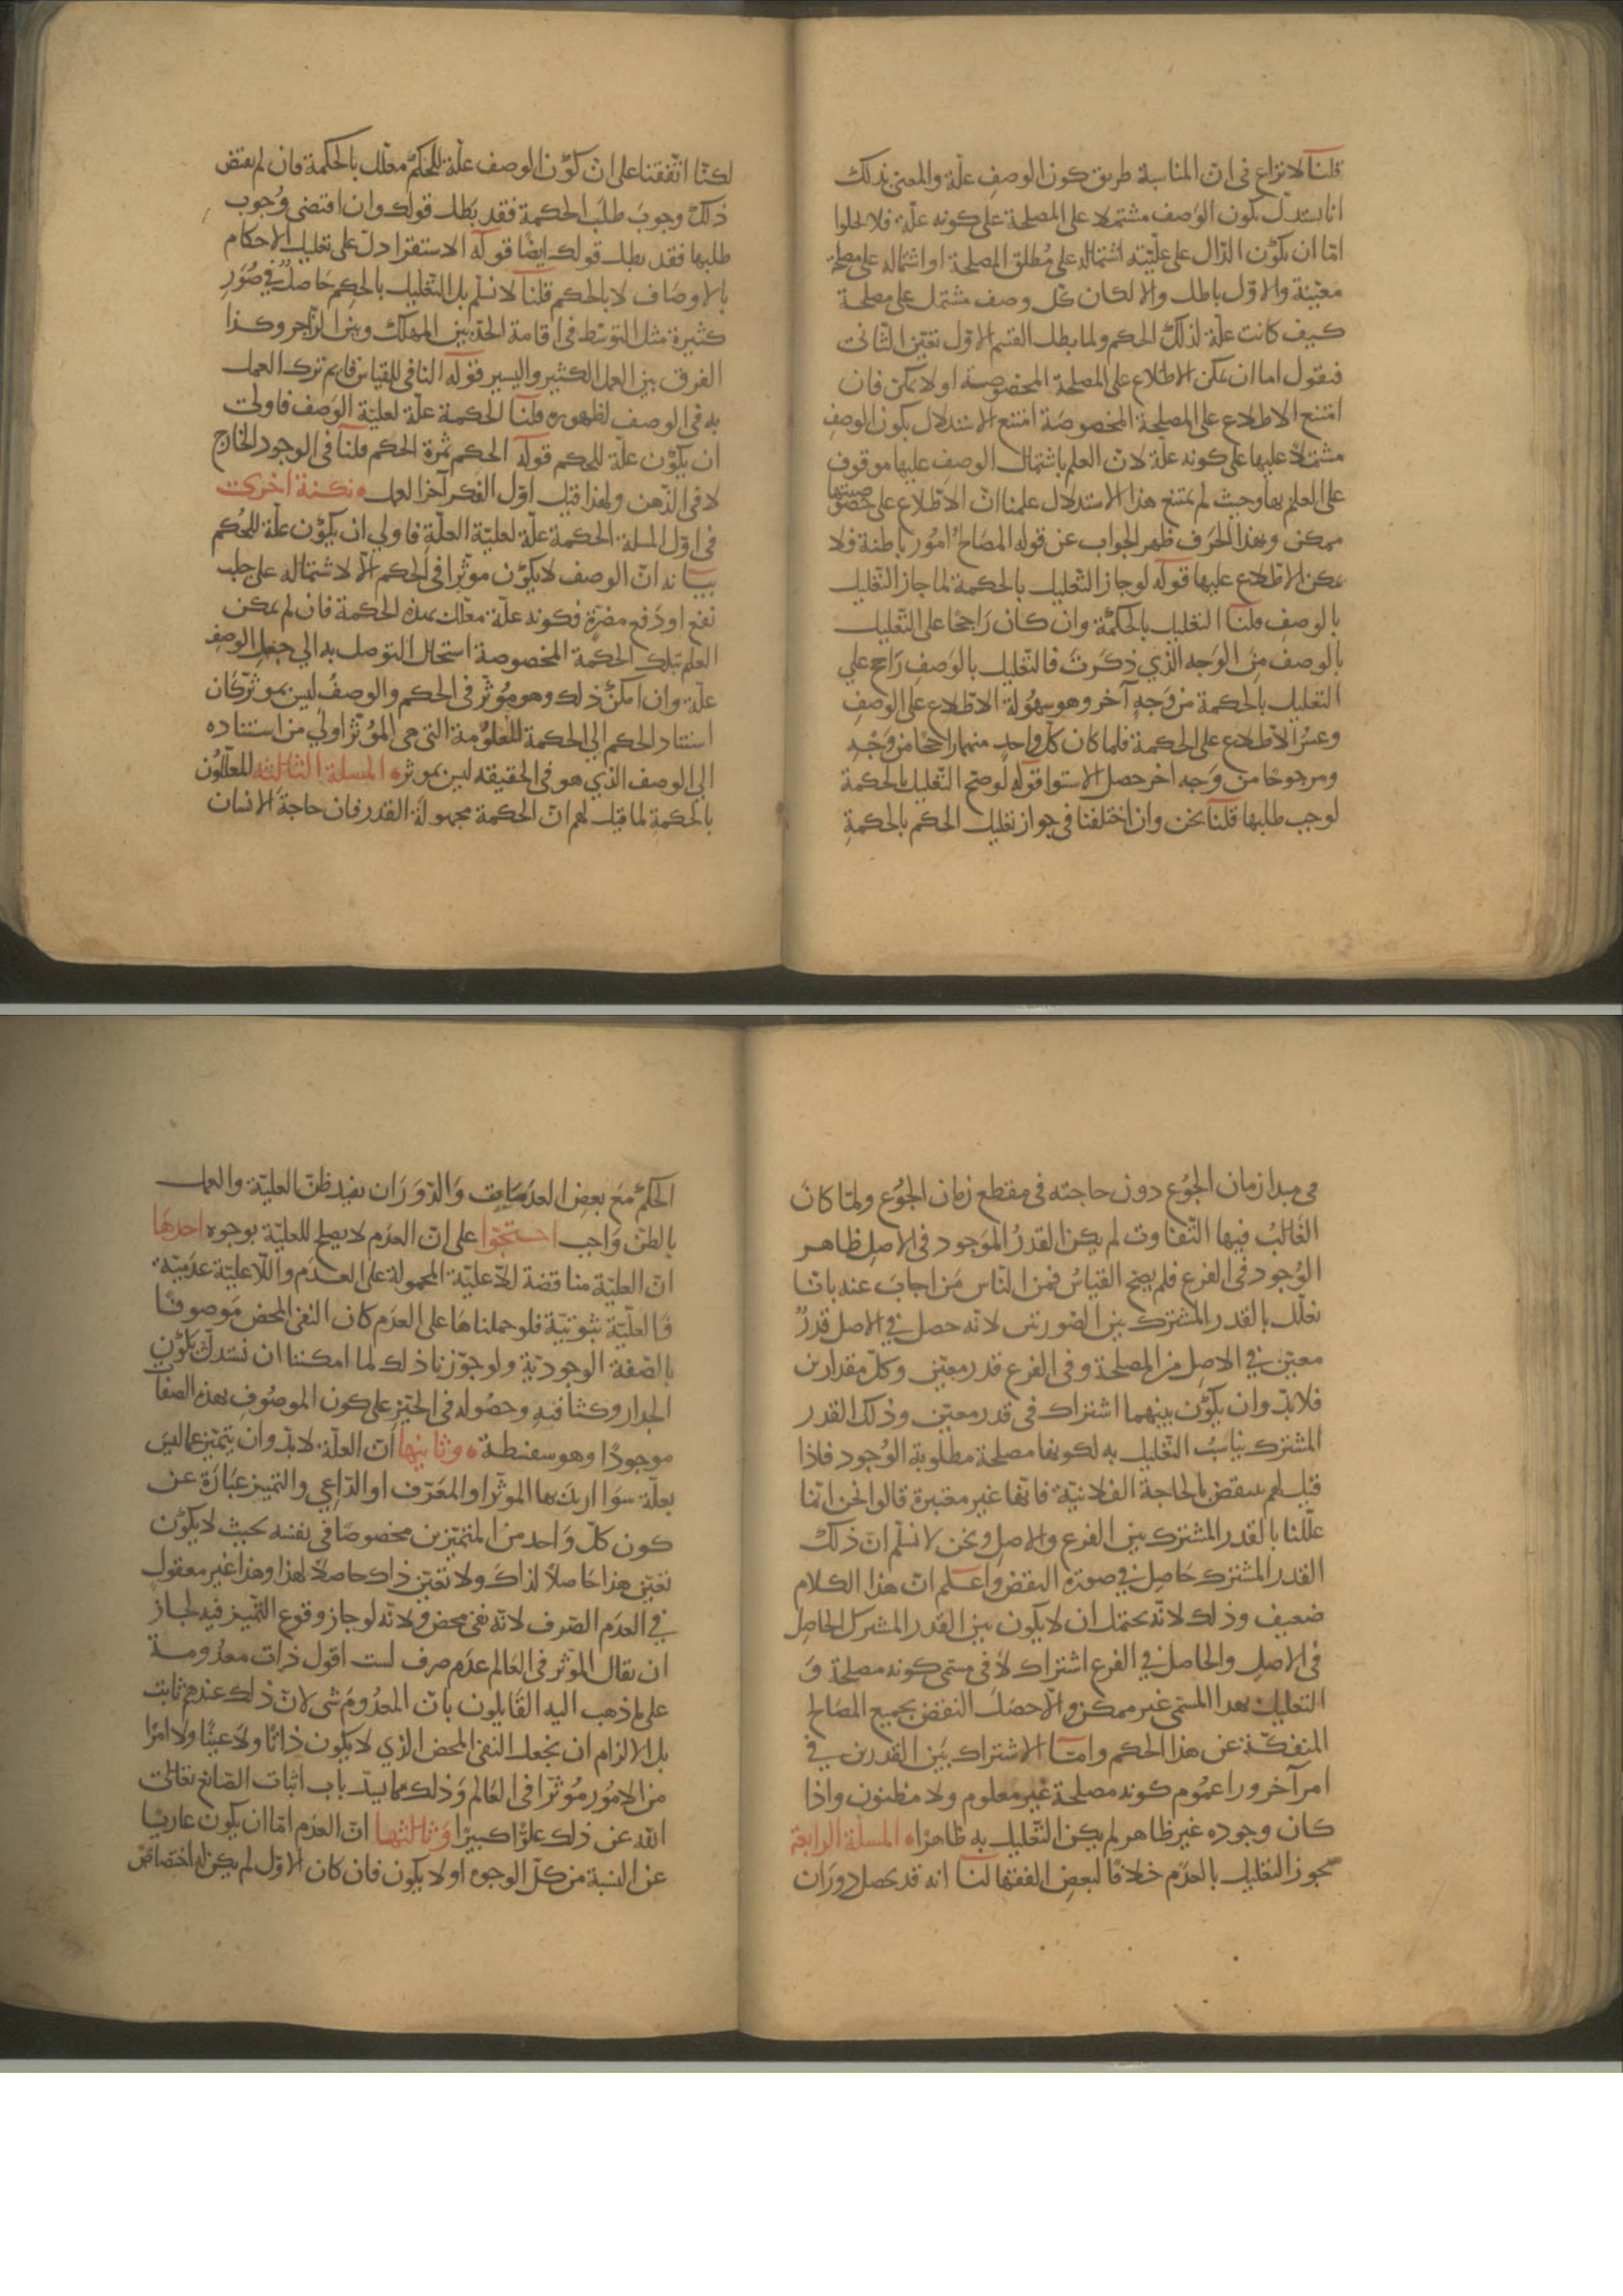 قلنا لا نزاع في ان المناسبة طريق كون الوصف علة والمعني بذلك
انا نستدل بكون الوصف مشتملا على المصلحة على كونه علة فلا يخلوا
امّا ان يكون الدّال على علّيّته اشتماله على مُطلق المصلحة او اشتماله على مصلحة
معيّنة والاوّل باطل والا لكان كل وصف مشتمل على مصلحة
كيف كانت علّة لذلك الحكم ولما بطل القسم الاوّل تعيّن الثّاني
فنقول اما ان يمكن الاطلاع على المصلحة المخصوصة او لا يمكن فان
امتنع الاطلاع على المصلحة المخصوصة امتنع الاستدلال بكون الوصف
مشتملاً عليها على كونه علّة لانّ العلم باشتمال الوصف عليها موقوف
على العلم بها وحيث لم يمتنع هذا الاستدلال علمنا انّ الاطلاع على خصوصيتها
ممكن وبهذا الحرف ظهر الجواب عن قوله المصالح امُور باطنة فلا
يمكن الاطّلاع عليها قوله لو جاز التّعليل بالحكمة لما جاز التّعليل
بالوصف قلنا التعليل بالحكمة وان كان رَاجحًا على التّعليل
بالوصف مِنَ الوَجه الّذي ذكَرتَ فالتّعليل بالوَصفِ رَاجح علي
التعليل بالحكمة من وَجهٍ آخر وهو سهُولة الاطّلاع على الوصفِ
وعسُر الاطلاع على الحكمة فلما كان كلّ واحدٍ منهما راجحًا من وَجْهٍ
ومرجوحًا من وَجه اخر حصل الاستوا قوله لو صحّ التّعليل بالحكمة
لوجب طلبها قلنا نحن وان اختلفنا في جواز تعليل الحكم بالحكمةِ
لكنّا اتّفقنا على انّ كوْن الوصف علّة للحُكم معلّل بالحكمة فان لم يقتض
ذلك وجوبَ طلَب الحكمة فقد بَطل قولك وان اقتضى وُجوب
طلبها فقد بطل قولك ايضًا قوله الاستقرا دلّ على تعليل الاحكام
بالاوصَاف لا بالحكم قلنا لا نسلّم بل التّعليل بالحِكم حَاصلٌ في صُوَرِ
كثيرة مثل التوسّط في اقامة الحدّ بين المهلك وبين الزّاجر وكذا
الفرق بين العمل الكثير واليسير قوله النافي للقياس قايم ترك العمل
به في الوصف لظهوره قلنا الحكمة علّة لعليّة الوَصف فاولى
ان يكوْن علّة للحكم قوله الحكم ثمرة الحكم قلنا في الوجود الخارج
لا في الذّهن ولهذا قيل اوّل الفكر آخر العمل نكتة اخرى
في اوّل المسلة الحكمة علّة لعليّة العلّة فاولي ان يكوْن علّة للحُكم
بيانه انّ الوصف لا يكوْن موثرًا في الحكم الّا لاشتماله على جلب
نفع او دَفع مضرّةٍ فكونه علّة معلّل بهذه الحكمة فان لم يمكن
العلم بتلك الحكمة المخصوصة استحال التوصل به الي جعل الوصفِ
علّة وان امكن ذلك وهو مُوثّر في الحكم والوصفُ ليس بموثّر كان
استناد الحكم الي الحكمة المعلوُمة التي هي المُوثّر اولي من استناده
الي الوصف الذي هو في الحقيقه ليس بموثر المسلة الثالثه للمعلّلوُن
بالحكمةِ لما قيل لهم انّ الحكمة مجهولة القدر فان حاجةَ الانسان
في مبدا زمان الجُوع دون حاجته في مقطع زمان الجُوع ولمّا كان
الغَالبُ فيها التّفاوت لم يكن القدرُ الموَجود في الاصلِ ظاهر
الوُجود في الفرع فلم يصح القياسُ فمن النّاس مَن اجابَ عنه بانّا
نعلّل بالقدر المشترك بين الصّورتين لانّه حصل في الاصل قدرٌ
معيّن في الاصلِ من المصلحة وفي الفرع قدر معيّن وكلّ مقدارين
فلا بدّ وان يكوْن بينهما اشتراك في قدر معيّن وذلك القدر
المشترك يناسبُ التّعليل به لكونها مصلحة مطلوبة الوُجود فاذا
قيل لهم ينتقض بالحاجة الفلانيّة فانّها غير معتبرة قالوا نحن انّما
علّلنا بالقدر المشترك بين الفرع والاصلِ ونحن لا نسلّم انّ ذلك
القدر المشترك حَاصِل في صورة النقض واعلم انّ هذا الكلام
ضعيف وذلك لانّه يحتمل ان لا يكون بين القدر المشترك الحاصِل
في الاصلِ والحاصل في الفرع اشتراك لا في مسمّى كونه مصلحة وَ
التعليل بهذا المسمّى غير ممكن والّا حصَلَ النقض بجميع المصَالح
المنفكّة عن هذا الحكم وامّا الاشتراك بَين القدرين في
امر آخر ورا عمُوم كونه مصلحة غير معلوم ولا مظنون واذا
كان وجوده غير ظاهر لم يكن التّعليل به ظاهرًا المسلة الرابعة
يجوز التعليل بالعدَم خلافًا لبعضِ الفقها لنا انه قد يحصل دورَان
الحكم مَع بعضِ العدَمَيات وَالدّوَرَان يفيد ظنّ العليّة والعمل
بالظنّ وَاجب احتجّوا على انّ العدَم لا يصلح للعليّة بوجوه احدهَا
انّ العليّة مناقضة للّاعليّة المحمولة على العدَم واللّاعليّة عدَميّة
فالعليّة ثبوتيّة فلو حملناهَا على العدَم كان النّفي المحض مَوصوفًا
بالصّفة الوجوديّة ولو جوّزنا ذلك لما امكننا ان نستدلّ بكوْنِ
الجدار وكثافتِهِ وحصُوله في الحيّز على كون الموصُوفِ بهذه الصفات
موجودًا وهو سفسطة وثانيها انّ العلّة لا بدّ وان يتميّز عمّا ليسَ
بعلّة سوَا اريد بها الموثّر او المعَرّف او الدّاعِي والتميز عبَارَة عن
كون كلّ وَاحد من المتميّزين مخصوصًا في نفسه بحيث لا يكوْن
تعيّن هذا حَاصلاً لذاكَ ولا تعيّن ذاك حاصلاً لهذا وهذا غير معقولٍ
في العدَم الصّرف لانّه نفي محض ولانّه لو جاز وقوع التّميز فيه لجاز
ان يقال الموّثر في العَالم عدَم صرف لست اقول ذات معدُومة
على ما ذهب اليه القَايلون بانّ المعدُومَ شي لانّ ذلك عندهم ثابت
بل الالزام ان نجعل النفي المحض الذي لا يكون ذاتًا ولا عينًا ولا امرًا
من الامُور مُوثرًا في العَالم وَذلك مما يسدّ باب اثبات الصّانع تعَالى
الله عن ذلك علوًّا كبيرًا وَثالثها انّ العدَم امّا ان يكون عاريا
عن النسبة من كلّ الوجوه او لا يكون فان كان الاوّل لم يكن له اختصاصٌ